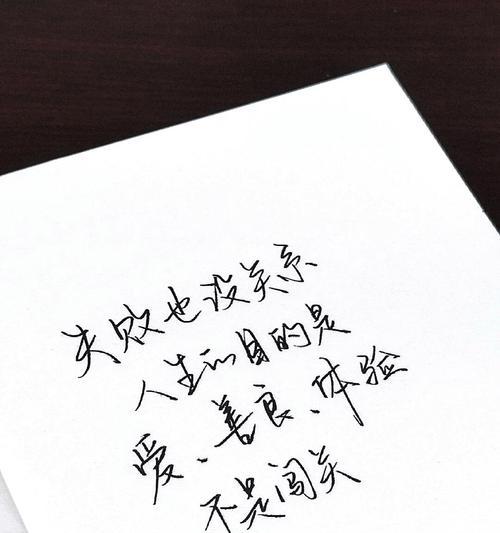 失败也没关系
人生的目的是
爱、善良、体验
不是闯关